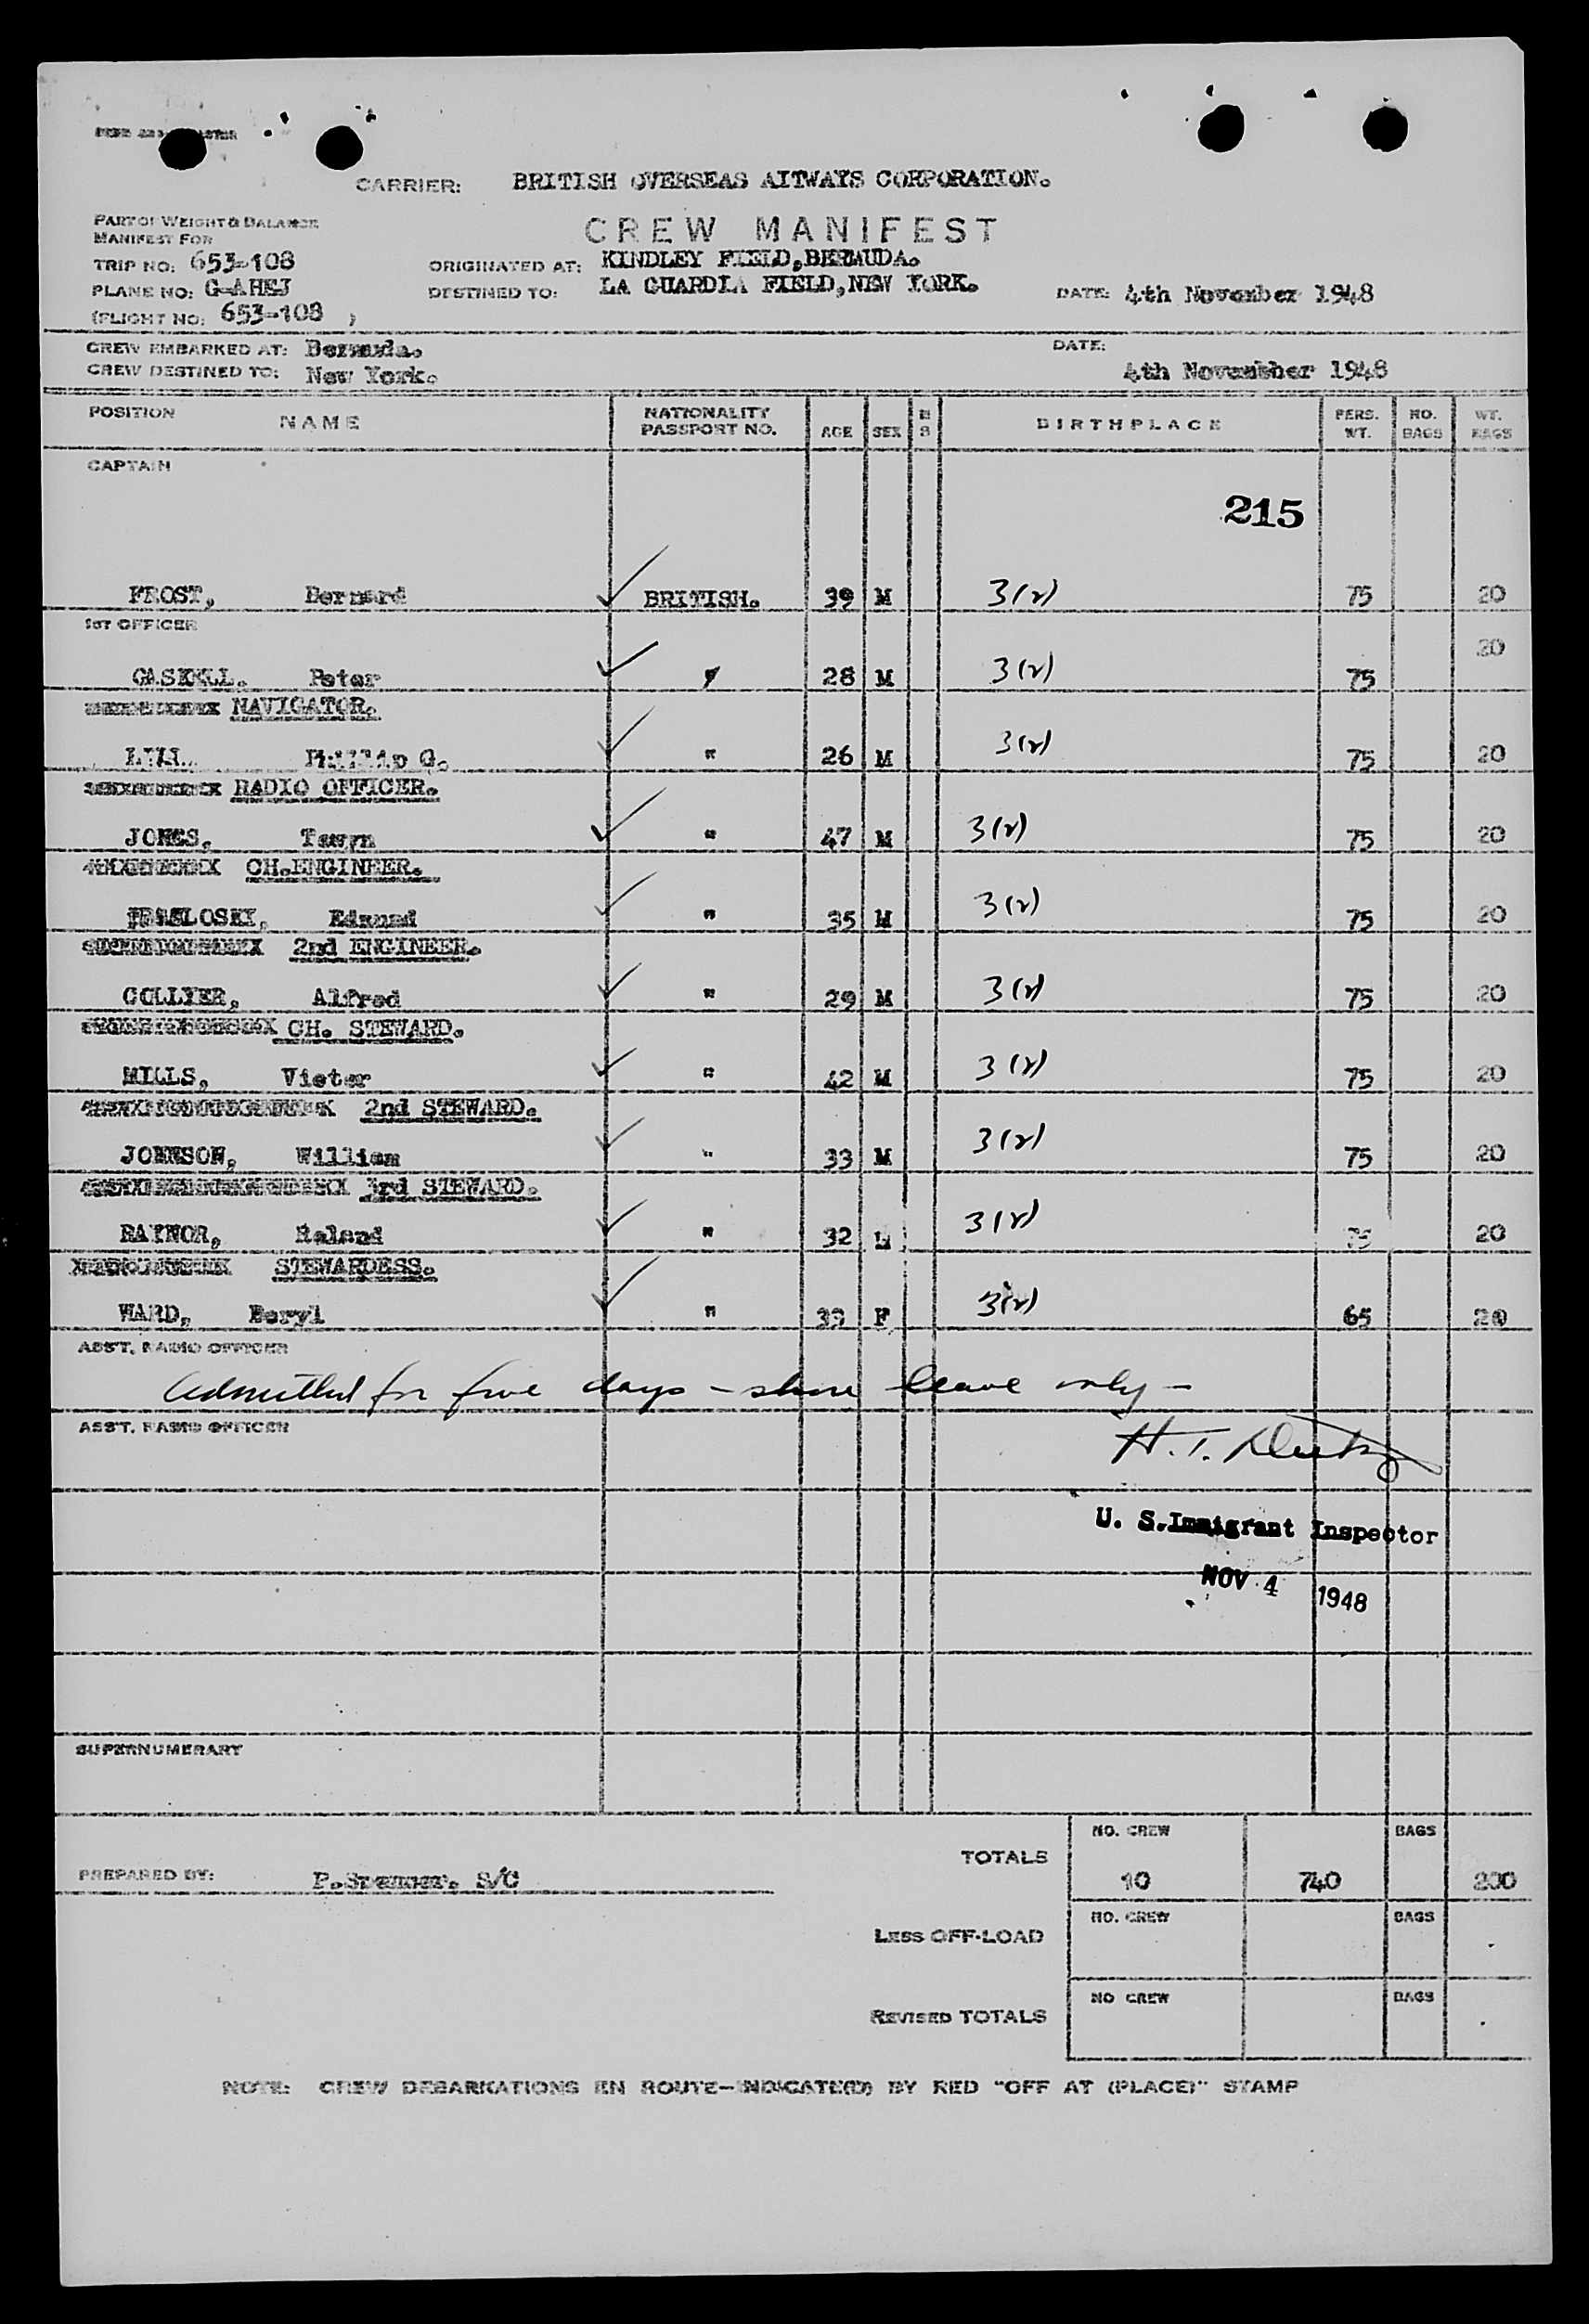 CARRIER: BRITISH OVERSEAS AITWAYS CORPORATION.
PART OF WEIGHT & BALANCE
MANIFEST FOR
CREW MANIFEST
TRIP NO: 653-108
ORIGINATED AT: KINDLEY FIELD, BERMUDA.
PLANE NO: G-AHEJ
DESTINED TO: LA GUARDIA FIELD, NEW YORK.
DATE: 4th November 1948
(FLIGHT NO: 653-108 )
CREW EMBARKED AT: Bermuda.
DATE:
CREW DESTINED TO: New York.
4th November 1948
POSITION NAME NATIONALITY PASSPORT NO. AGE SEX M S BIRTHPLACE PERS. WT. NO. BAGS WT. BAGS
CAPTAIN
215
FROST, Bernard BRITISH. 39 M 3(2) 75 20
1ST OFFICER
GASKELL. Peter " 28 M 3(2) 75 20
NAVIGATOR.
Phillip G. " 26 M 3(2) 75 20
RADIO OFFICER.
JONES, " 47 M 3(2) 75 20
CH.ENGINEER.
Edmund " 35 M 3(2) 75 20
2nd ENGINEER.
COLLYER, Alfred " 29 M 3(2) 75 20
CH. STEWARD.
MILLS, Victor " 42 M 3(2) 75 20
2nd STEWARD.
JOHNSON, William " 33 M 3(2) 75 20
3rd STEWARD.
RAYNOR, Roland " 32 M 3(2) 75 20
STEWARDESS.
WARD, Beryl " F 3(2) 65 20
ASS'T. RADIO OFFICER
Admitted for five days - shore leave only -
ASS'T. RADIO OFFICER
H.T.
U. S. Immigrant Inspector
NOV 4 1948
SUPERNUMERARY
TOTALS
NO. CREW
BAGS
PREPARED BY: S/C
10 740 200
LESS OFF-LOAD
NO. CREW
BAGS
REVISED TOTALS
NO CREW
BAGS
NOTE: CREW DEBARKATIONS EN ROUTE-INDICATE(D) BY RED "OFF AT (PLACE)" STAMP